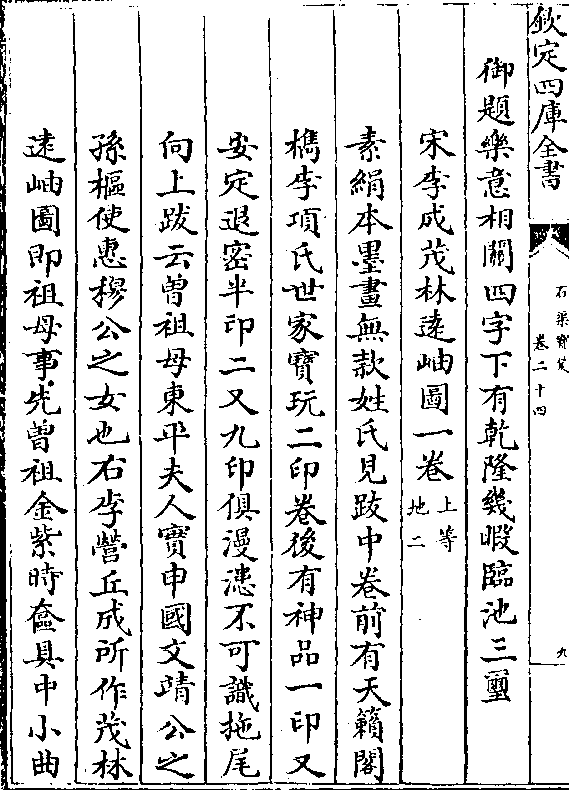 欽定四庫全書
石渠寶笈
卷二十四
九
御題樂意相關四字下有乾隆幾暇臨池三璽
宋李成茂林遠岫圖一卷上等地二
素絹本墨畫無款姓氏見跋中卷前有天籟閣
檇李項氏世家寶玩二印卷後有神品一印又
安定退密半印二又九印俱漫漶不可識拖尾
向上跋云曽祖母東平夫人實申國文靖公之
孫樞使惠穆公之女也右李營丘成所作茂林
逺岫圖即祖母事先曽祖金紫時奩具中小曲